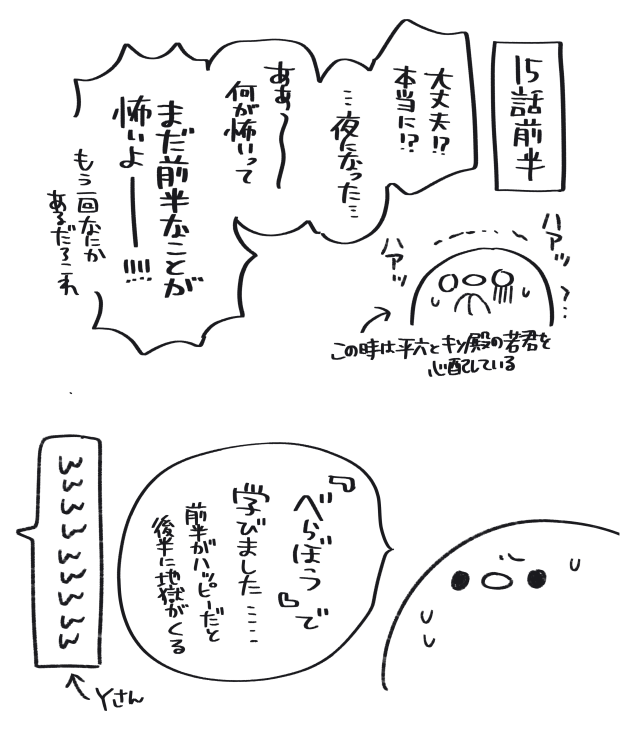 15話前半
大丈夫!?
本当に!?
…夜になった…
ああ〜
何が怖いって
まだ前半なことが
怖いよ――!!!!…
もう一回なにか
あるだろこれ
ハアッ
ハアッ
この時は平六とキン殿の若君を
心配している
『べらぼう』で
学びました……
前半がハッピーだと
後半に地獄がくる
wwwwwwww
Yさん